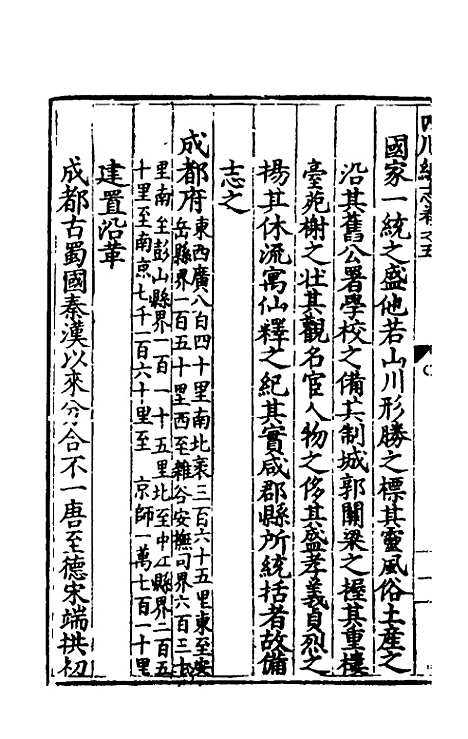 四川總志卷之五
國家一統之盛他若山川形勝之標其靈風俗土產之
沿其舊公署學校之備其制城郭關梁之握其重樓
臺苑榭之壯其觀名宦人物之侈其盛孝義貞烈之
揚其休流寓仙釋之紀其實咸郡縣所統括者故備
志之
成都府東西廣八百四十里南北袤三百六十五里東至安
岳縣界一百五十里西至雜谷安撫司界六百三十
里南至彭山縣界一百一十五里北至中江縣界二百五
十里至南京七千二百六十里至　京師一萬七百一十里
建置沿革
成都古蜀國秦漢以來分合不一唐至德宋端拱初